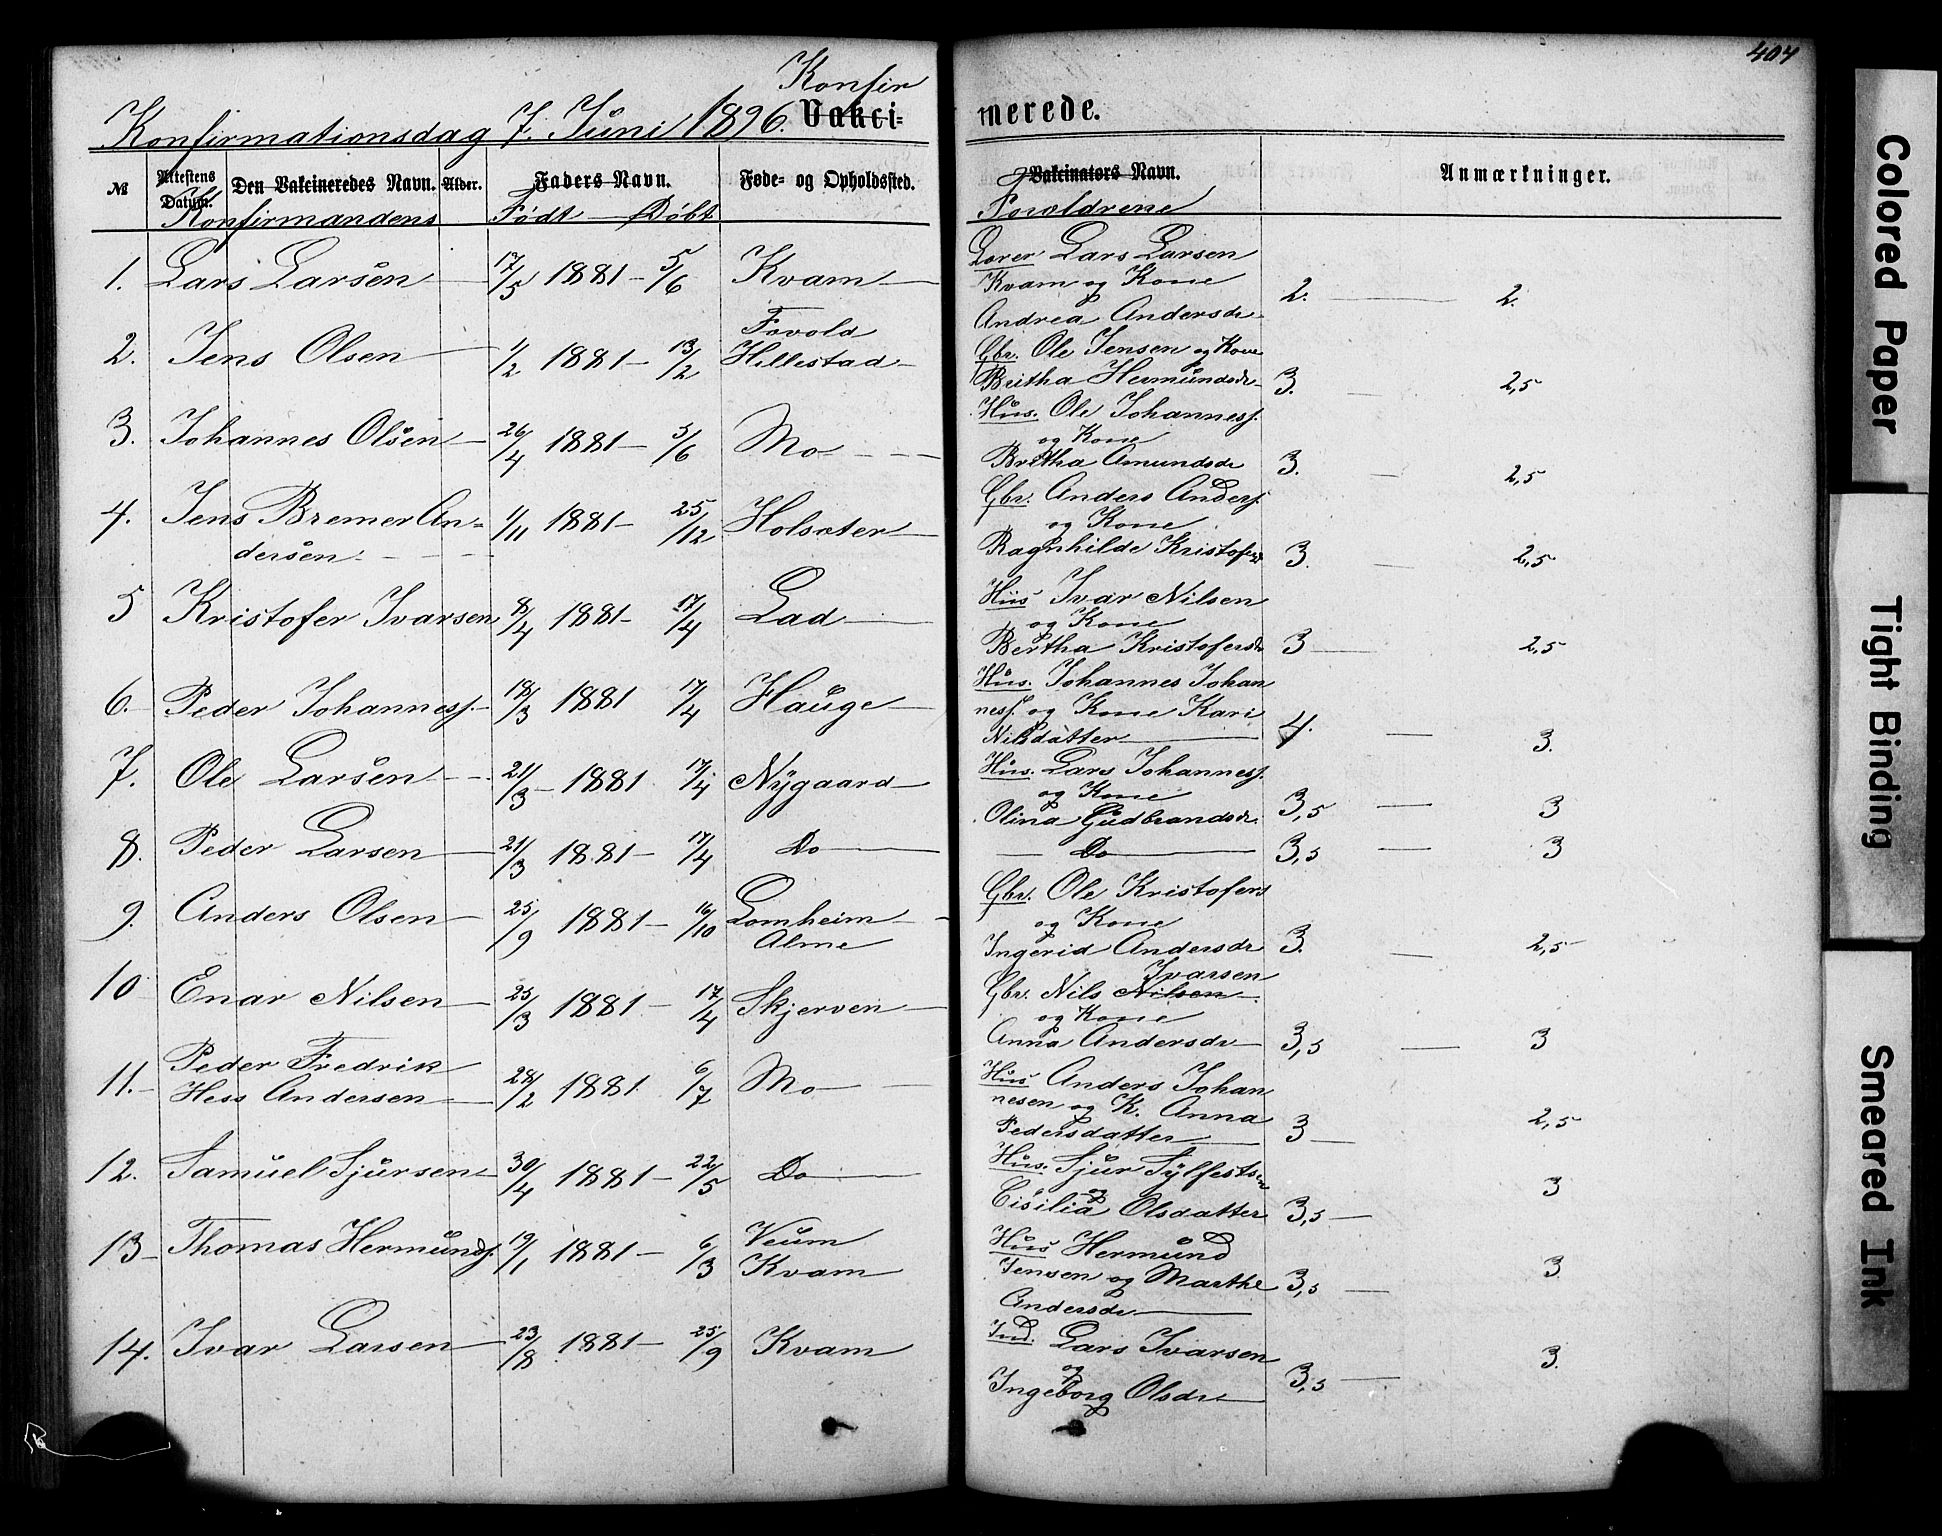 404
Konfir
Konfirmationsdag 7. Juni 1896. Vakci= merede.
№ Attestens Datum. Den Vakcineredes Navn. Alder. Faders Navn. Føde- og Opholdssted. Vakcinators Navn. Anmærkninger.
Konfirmandens Født — Døbt Forældrene
1. Lars Larsen 17/5 1881 - 5/6 Kvam
Gårer Lars Larsen
Kvam og Kone
Andrea Andersdr.
2. 2.
2. Jens Olsen 1/2 1881 - 13/2
Hillestad
Gbr. Ole Jensen og Kone
Britha Hermundsdr.
3. 2,5
3. Johannes Olsen 26/4 1881 - 5/6 Mo
Hus. Ole Johanness.
og Kone
Britha Amundsdr
3. 2,5
4. Jens Bremer An=
dersen 1/11 1881 - 25/12 Holsæter
Gbr. Anders Anders.
og Kone
Ragnhilde Kristofersdr
3. 2,5
5 Kristofer Ivarsen 8/4 1881 - 17/4 Lad
Hus Ivar Nilsen
og Kone
Bertha Kristofersdr
3 2,5
6. Peder Johanness. 18/3 1881 17/4 Hauge
Hus. Johannes Johan
ness. og Kone Kari
Nilsdatter
4. 3.
7. Ole Larsen 21/3 - 1881 17/4 Nygaard
Hus. Lars Johanness.
og Kone
Olina Gudbrandsdr.
3,5 3
8. Peder Larsen 21/3 1881 - 17/4 Do
Do
3,5 3
9. Anders Olsen 25/9 1881 - 16/10 Lomheim
Alme
Gbr. Ole Kristofers
og Kone
Ingerid Andersdr
3. 2,5
10 Enar Nilsen 25/3 1881 - 17/4 Skjerven
Ivarsen
Gbr. Nils Nilsen
og Kone
Anna Andersdr
3,5 3
11. Peder Fredrik
Hess Andersen 28/2 1881 6/7 Mo
Hus Anders Johan
nesen og K. Anna
Pedersdatter
3 2,5
12. Samuel Sjursen 30/4 1881 - 22/5 Do
Hus. Sjur Sylfestsen
og
Cisilia Olsdatter
3,5 3
13 Thomas Hermunds. 19/1 1881 - 6/3 Veum
Kvam
Hus Hermund
Jensen og Marthe
Andersdr
3,5 3
14. Ivar Larsen 23/8 1881 - 25/9 Kvam
Ind. Lars Ivarsen
og
Ingeborg Olsdr
3,5 3.
Colored Paper
Tight Binding
Smeared Ink